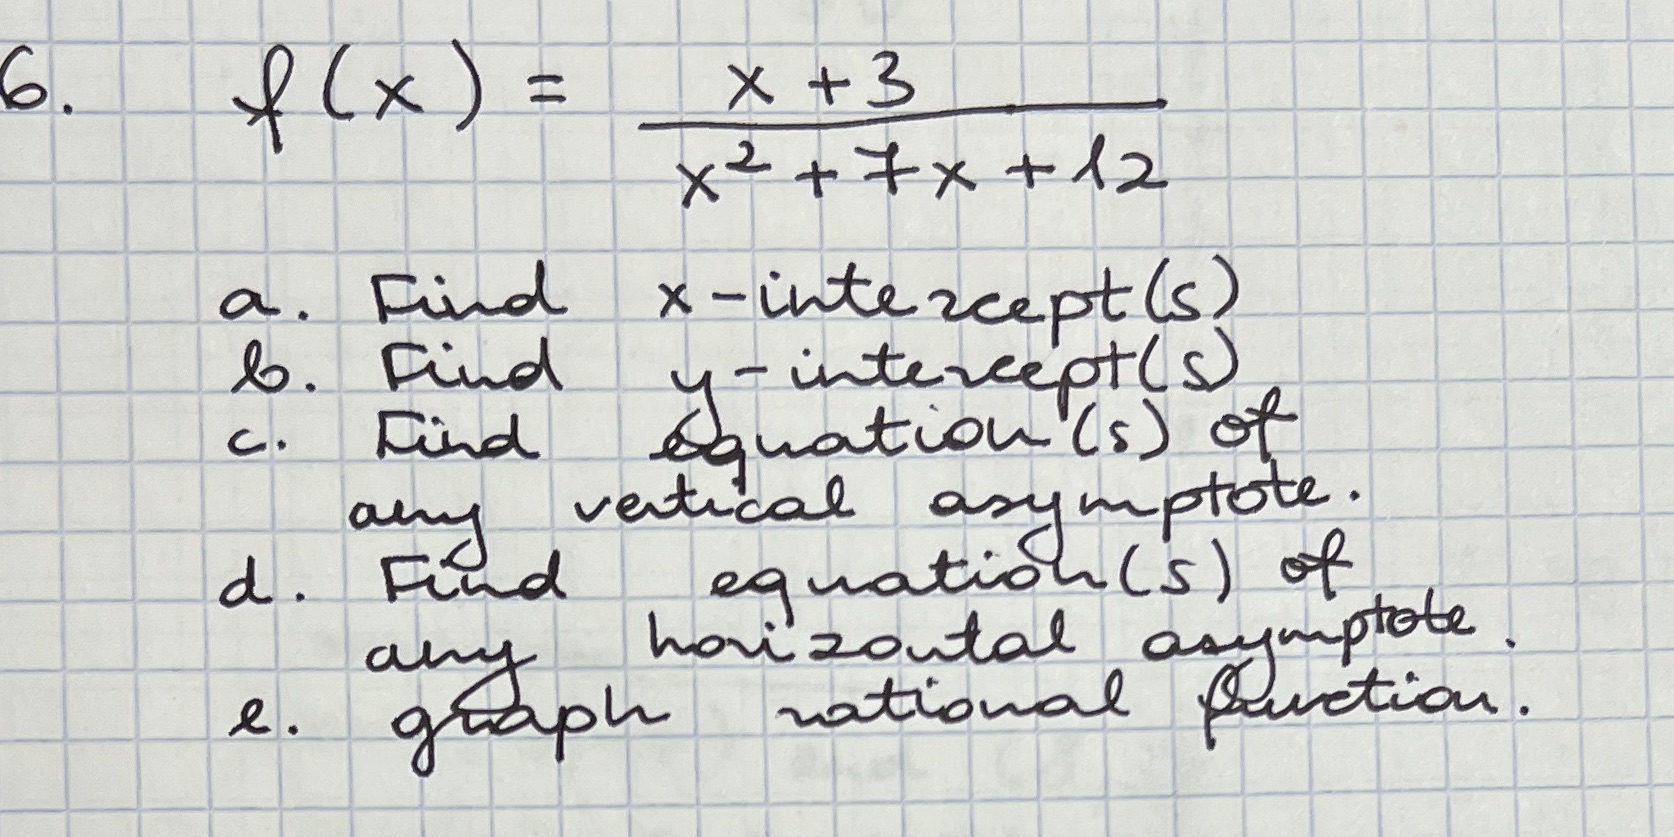 6. f(x) = x + 3
x² + 7x + 12
a. Find x-intercept(s)
b. Find y-intercept(s)
c. Find equation(s) of
any vertical asymptote.
d. Find equation(s) of
any horizontal asymptote.
e. graph rational function.